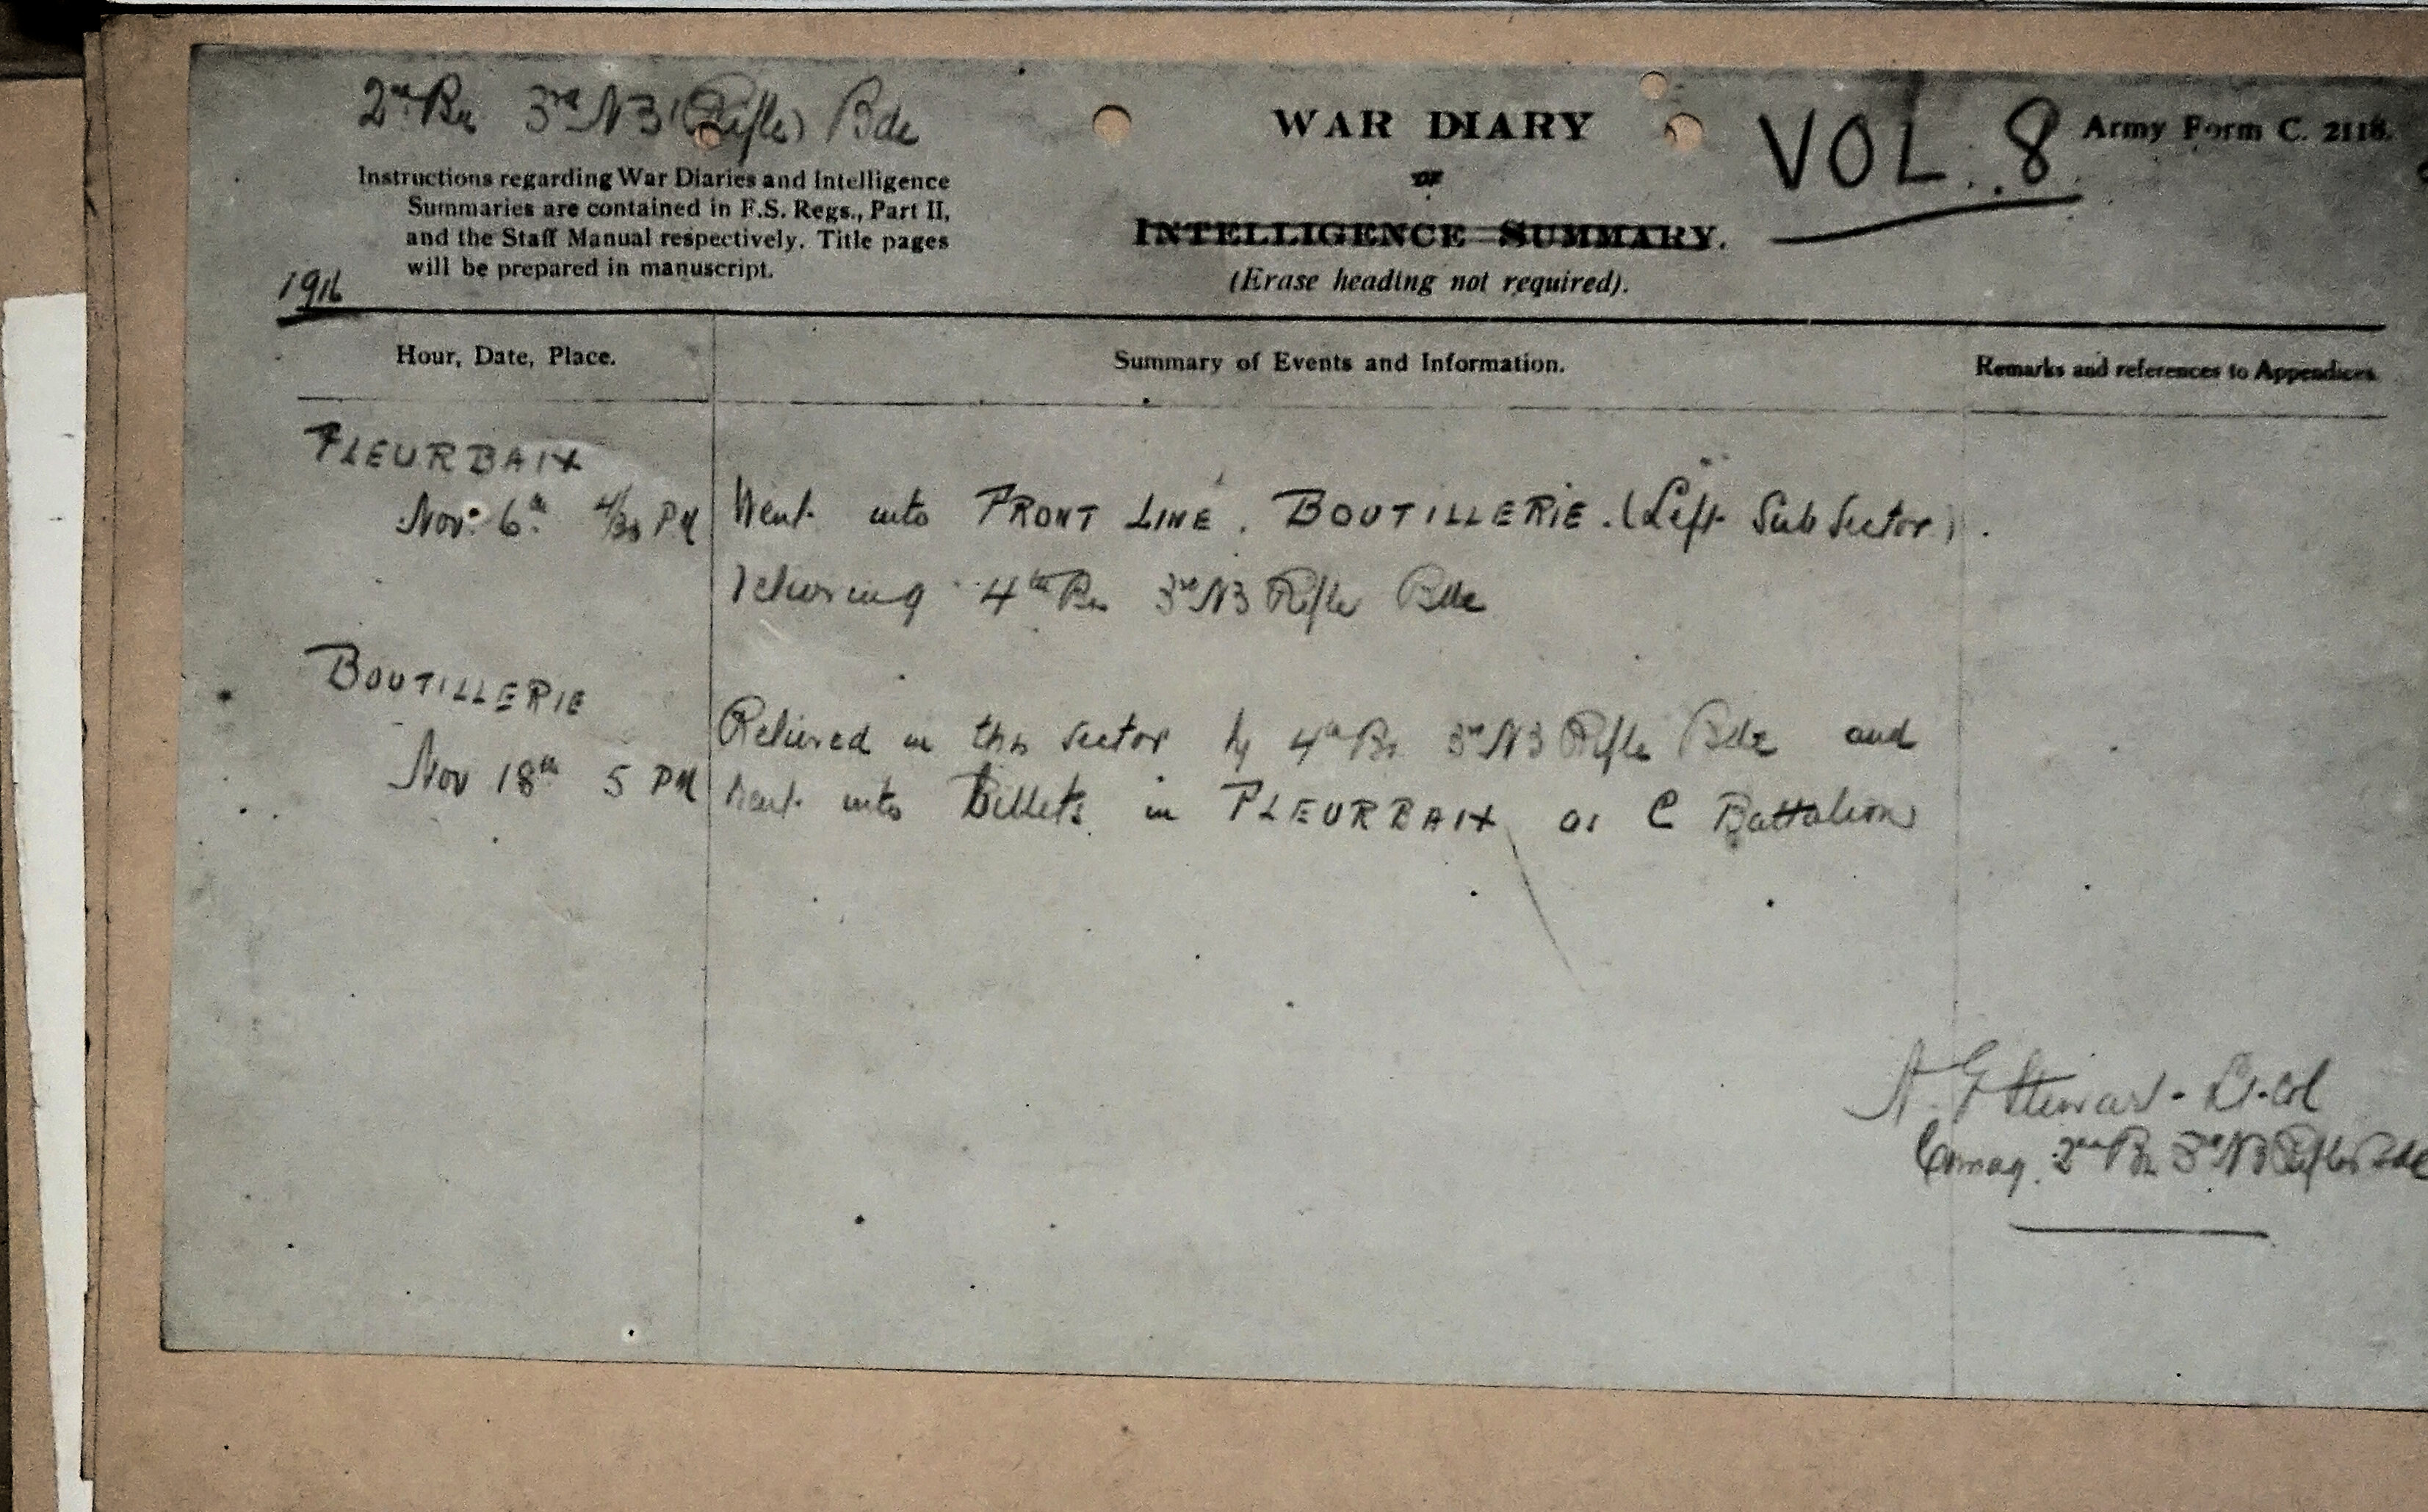 2nd Bn 3rd NZ (Rifle) Bde
WAR DIARY
VOL. 8
Army Form C. 2118.
or
INTELLIGENCE SUMMARY.
(Erase heading not required).
Instructions regarding War Diaries and Intelligence
Summaries are contained in F.S. Regs., Part II,
and the Staff Manual respectively. Title pages
will be prepared in manuscript.
1916
Hour, Date, Place.
Summary of Events and Information.
Remarks and references to Appendices.
FLEURBAIX
Nov. 6th 4/30 PM
Went into FRONT LINE. BOUTILLERIE. (Left Sub Sector).
relieving 4th Bn 3rd NZ Rifle Bde
BOUTILLERIE
Relieved in this sector by 4th Bn 3rd NZ Rifle Bde and
Nov 18th 5 PM
went into Billets in FLEURBAIX as C Battalion
A. E Stewart - Lt. Col
Comdg. 2nd Bn 3rd NZ Rifle Bde